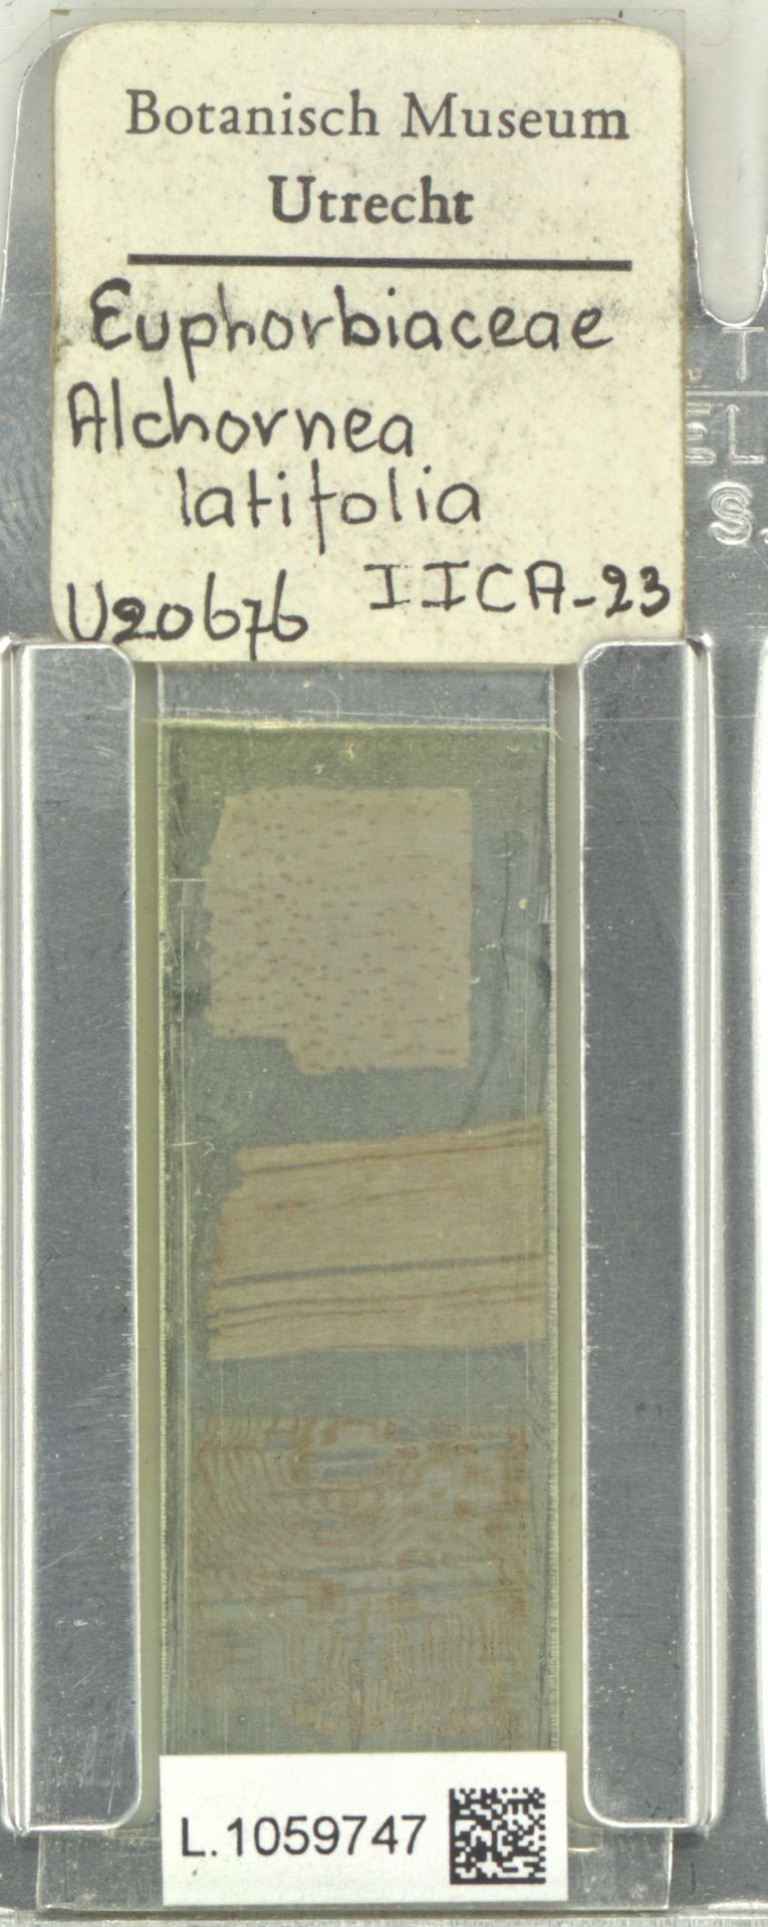 Botanisch Museum
Utrecht
Euphorbiaceae
Alchornea
latifolia
U20676 IICA-23
L.1059747